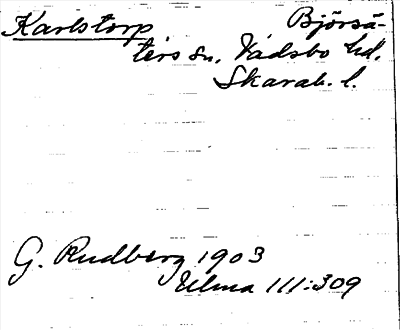 Karlstorp Björsä-
ters sn, Vadsbo hd.
Skarab. l.
G. Rudberg 1903
Ulma 111:309